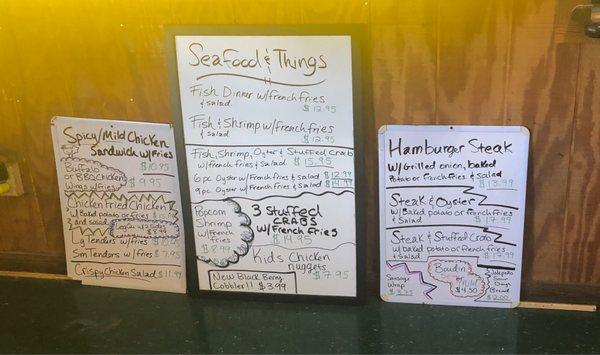 Spicy/Mild Chicken
Sandwich w/fries
$10.95
Buffalo
or BBQ Chicken
Wings w/fries
$9.95
Chicken Fried Chicken
w/ Baked potato or fries
and salad
w/2 sides
$8.99
Lg Tenders w/fries
Sm Tenders w/fries $7.95
Crispy Chicken Salad $11.99
Seafood & Things
Fish Dinner w/french fries
& salad $12.95
Fish & Shrimp w/french fries
& salad $12.95
Fish, Shrimp, Oyster & Stuffed Crab
w/french fries & Salad $15.95
6 pc Oyster w/french fries & salad $12.99
9 pc Oyster w/french fries & salad $14.99
Popcorn
Shrimp
w/french
fries
$8.99
3 Stuffed
Crabs
w/french fries
$14.95
Kids Chicken
nuggets
$7.95
New Black Berry
Cobbler!! $3.99
Hamburger Steak
w/Grilled onion, baked
potato or french fries & salad
$13.99
Steak & Oyster
w/ Baked potato or french fries
& salad $17.99
Steak & Stuffed Crab
w/ Baked potato or french fries
& salad $17.99
Sausage
Wrap
$3.75
Boudin
Mild
$4.50
Jalapeño
Sour
Dough
Bread
$2.00